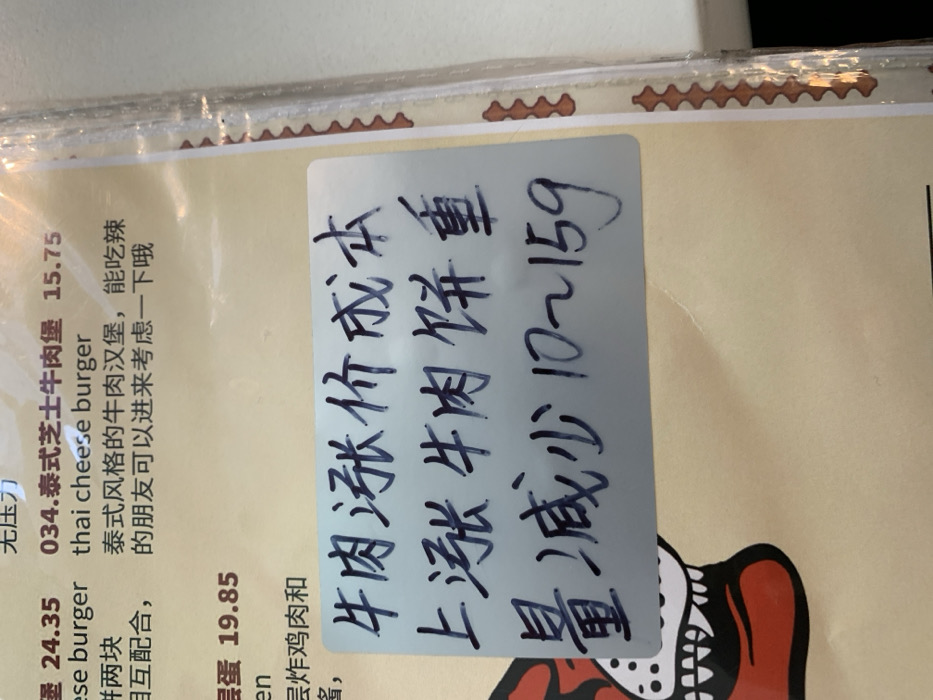 无压力
034.泰式芝士牛肉堡 15.75
thai cheese burger
泰式风格的牛肉汉堡，能吃辣
的朋友可以进来考虑一下哦
堡 24.35
burger
两块
相互配合，
蛋 19.85
层炸鸡肉和
牛肉涨价成本
上涨牛肉饼重
量减少10~15g